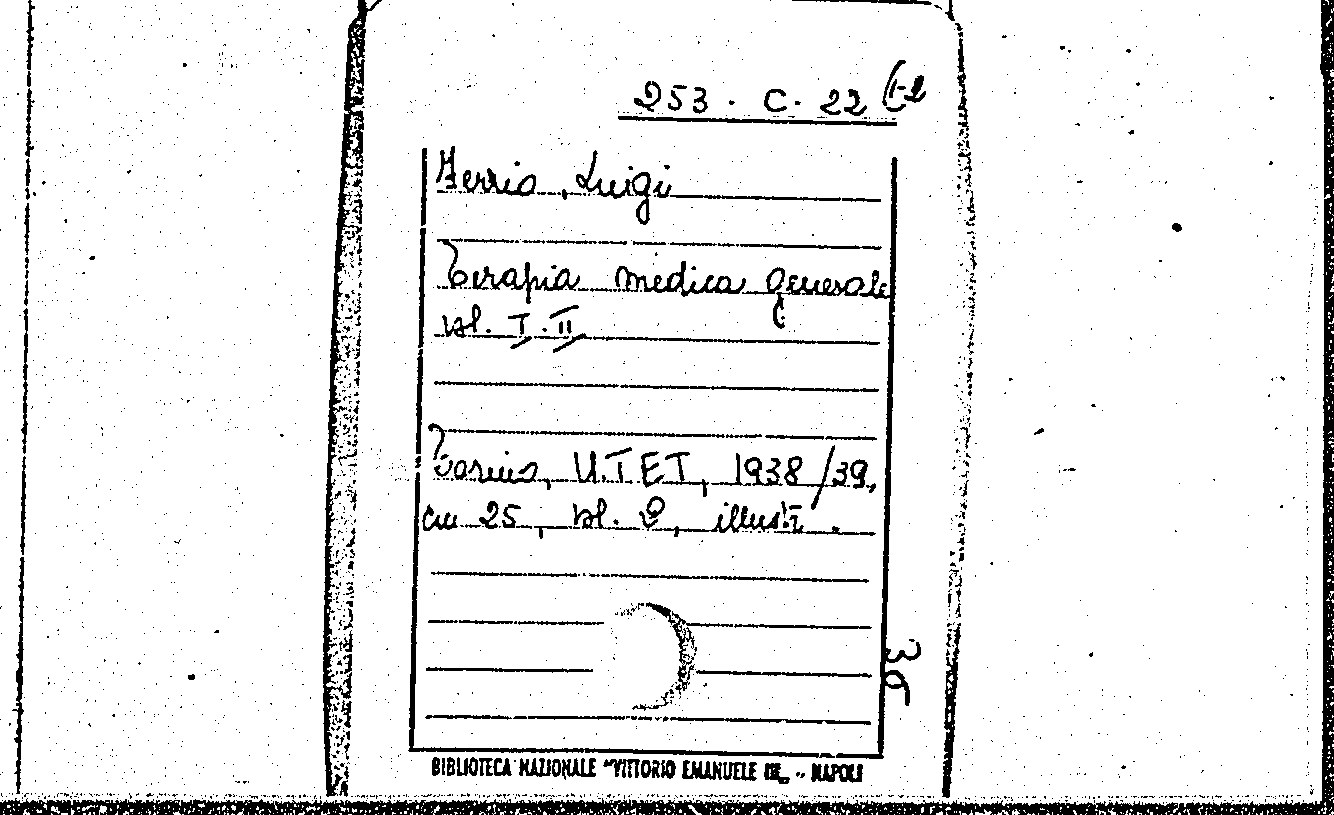 253. C. 22 (1-2
Ferrio, Luigi
Terapia medica generale
vol. I. II
Torino, U.T.E.T, 1938/39,
cm 25, vol. 2, illustr.
36
BIBLIOTECA NAZIONALE "VITTORIO EMANUELE III„ - NAPOLI